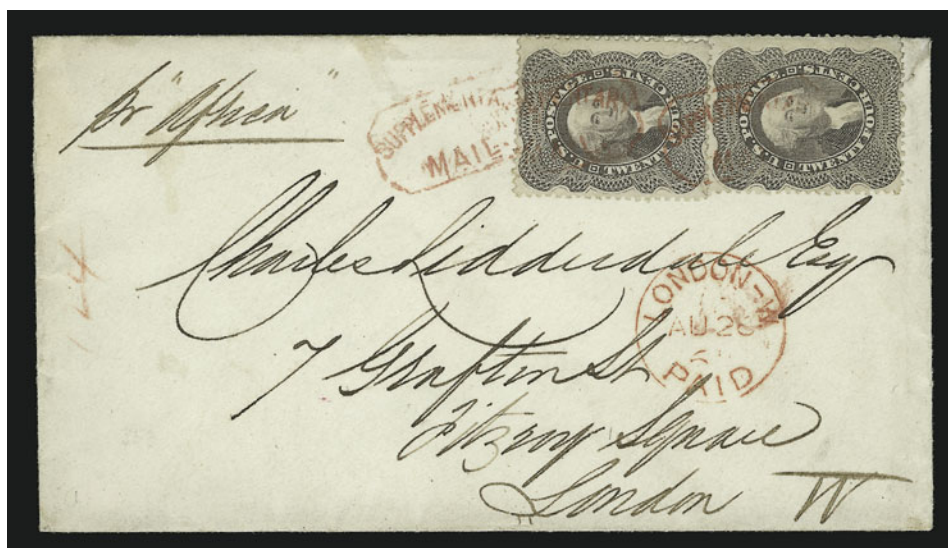 pr "Africa"
SUPPLEMENTARY
MAIL
U.S. POSTAGE.
TWENTY FOUR CENTS
U.S. POSTAGE.
TWENTY FOUR CENTS
Charles Lidderdale Esq
24
LONDON-W
AU 26
PAID
7 Grafton St
Fitzroy Square
London W